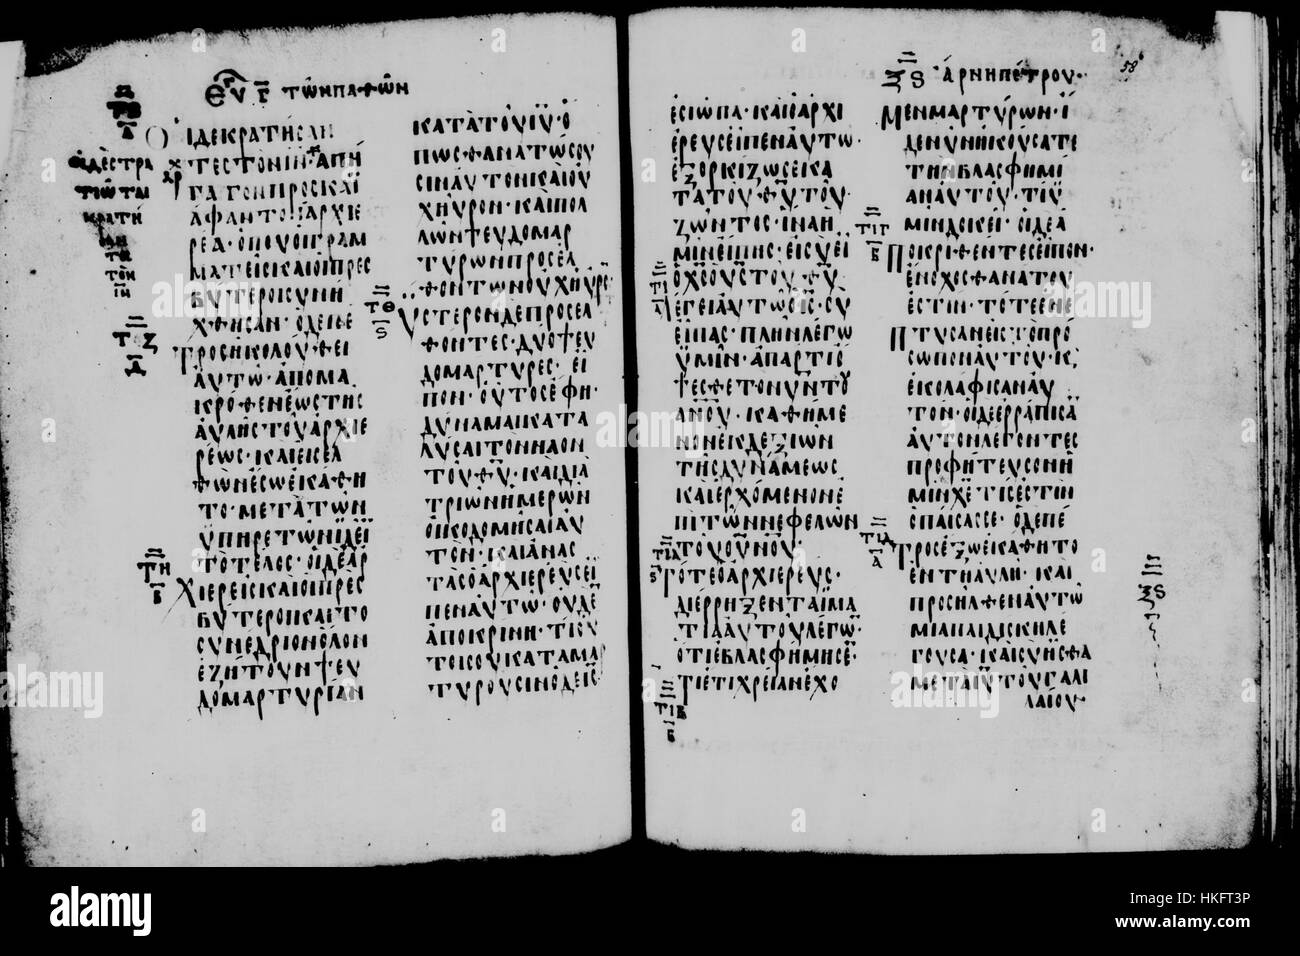 ΕΥΓ Γ ΤΩΝΠΑΘΩΝ
ΟΙΔΕΚΡΑΤΗΣΑΝ
ΤΕΣΤΟΝΙΝ·ΑΠΗ
ΓΑΓΟΝΠΡΟΣΚΑΪ
ΑΦΑΝΤΟΝΑΡΧΙΕ
ΡΕΑ·ΟΠΟΥΟΙΓΡΑΜ
ΜΑΤΕΙΣΚΑΙΟΙΠΡΕΣ
ΒΥΤΕΡΟΙΣΥΝΗ
ΧΘΗΣΑΝ·ΟΔΕΠΕ
ΤΡΟΣΗΚΟΛΟΥΘΕΙ
ΑΥΤΩ·ΑΠΟΜΑ
ΚΡΟΘΕΝΕΩΣΤΗΣ
ΑΥΛΗΣΤΟΥΑΡΧΙΕ
ΡΕΩΣ·ΚΑΙΕΙΣΕΛ
ΘΩΝΕΣΩΕΚΑΘΗ
ΤΟ·ΜΕΤΑΤΩΝ
ΫΠΗΡΕΤΩΝΪΔΕΙ
ΤΟΤΕΛΟΣ·ΟΙΔΕΑΡ
ΧΙΕΡΕΙΣΚΑΙΟΙΠΡΕΣ
ΒΥΤΕΡΟΙΚΑΙΤΟ
ΣΥΝΕΔΡΙΟΝΟΛΟΝ
ΕΖΗΤΟΥΝΨΕΥ
ΔΟΜΑΡΤΥΡΙΑΝ
ΚΑΤΑΤΟΥΙΥ·Ο
ΠΩΣΘΑΝΑΤΩΣΟΥ
ΣΙΝΑΥΤΟΝΚΑΙΟΥ
ΧΗΥΡΟΝ·ΚΑΙΠΟΛ
ΛΩΝΨΕΥΔΟΜΑΡ
ΤΥΡΩΝΠΡΟΣΕΛ
ΘΟΝΤΩΝΟΥΧΗΥΡΟ
ΥΣΤΕΡΟΝΔΕΠΡΟΣΕΛ
ΘΟΝΤΕΣ·ΔΥΟΨΕΥ
ΔΟΜΑΡΤΥΡΕΣ·ΕΙ
ΠΟΝ·ΟΥΤΟΣΕΦΗ·
ΔΥΝΑΜΑΙΚΑΤΑ
ΛΥΣΑΙΤΟΝΝΑΟΝ
ΤΟΥΘΥ·ΚΑΙΔΙΑ
ΤΡΙΩΝΗΜΕΡΩΝ
ΟΙΚΟΔΟΜΗΣΑΙΑΥ
ΤΟΝ·ΚΑΙΑΝΑΣ
ΤΑΣΟΑΡΧΙΕΡΕΥΣΕΙ
ΠΕΝΑΥΤΩ·ΟΥΔΕ
ΑΠΟΚΡΙΝΗ·ΤΙΟΥ
ΤΟΙΣΟΥΚΑΤΑΜΑΡ
ΤΥΡΟΥΣΙΝΟΔΕΙΣ
ΞϚ ΑΡΝΗΠΕΤΡΟΥ· 58
ΕΣΙΩΠΑ·ΚΑΙΟΑΡΧΙ
ΕΡΕΥΣΕΙΠΕΝΑΥΤΩ·
ΕΞΟΡΚΙΖΩΣΕΚΑ
ΤΑΤΟΥΘΥΤΟΥ·
ΖΩΝΤΟΣ·ΙΝΑΗ
ΜΙΝΕΙΠΗΣ·ΕΙΣΥΕΙ
ΟΧΣΟΥΣΤΟΥΘΥ
ΛΕΓΕΙΑΥΤΩΟΙΣ·ΣΥ
ΕΙΠΑΣ·ΠΛΗΝΛΕΓΩ
ΫΜΙΝ·ΑΠΑΡΤΙΟ
ΨΕΣΘΕΤΟΝΥΝΤΟΥ
ΑΝΟΥ·ΚΑΘΗΜΕ
ΝΟΝΕΚΔΕΞΙΩΝ
ΤΗΣΔΥΝΑΜΕΩΣ
ΚΑΙΕΡΧΟΜΕΝΟΝΕ
ΠΙΤΩΝΝΕΦΕΛΩΝ
ΤΟΥΟΥΝΟΥ·
ΤΟΤΕΟΑΡΧΙΕΡΕΥΣ·
ΔΙΕΡΡΗΞΕΝΤΑΪΜΑ
ΤΙΑΑΥΤΟΥΛΕΓΩ·
ΟΤΙΕΒΛΑΣΦΗΜΗΣΕ·
ΤΙΕΤΙΧΡΕΙΑΝΕΧΟ
ΜΕΝΜΑΡΤΥΡΩΝ·Ϊ
ΔΕΝΥΝΗΚΟΥΣΑΤΕ
ΤΗΝΒΛΑΣΦΗΜΙ
ΑΝΑΥΤΟΥ·ΤΙΥ
ΜΙΝΔΟΚΕΙ·ΟΙΔΕΑ
ΠΟΚΡΙΘΕΝΤΕΣΕΙΠΟΝ·
ΕΝΟΧΟΣΘΑΝΑΤΟΥ
ΕΣΤΙΝ·ΤΟΤΕΕΝΕ
ΠΤΥΣΑΝΕΙΣΤΟΠΡΟ
ΣΩΠΟΝΑΥΤΟΥ·Κ
ΕΚΟΛΑΦΙΣΑΝΑΥ
ΤΟΝ·ΟΙΔΕΕΡΡΑΠΙΣΑ
ΑΥΤΟΝΛΕΓΟΝΤΕΣ
ΠΡΟΦΗΤΕΥΣΟΝΗ
ΜΙΝΧΕΤΙΣΕΣΤΙΝ
ΟΠΑΙΣΑΣΣΕ·ΟΔΕΠΕ
ΤΡΟΣΕΞΩΕΚΑΘΗΤΟ
ΕΝΤΗΑΥΛΗ·ΚΑΙ
ΠΡΟΣΗΛΘΕΝΑΥΤΩ
ΜΙΑΠΑΙΔΙΣΚΗΛΕ
ΓΟΥΣΑ·ΚΑΙΣΥΗΣΘΑ
ΜΕΤΑΙΥΤΟΥΓΑΛΙ
ΛΑΙΟΥ
ΤΖ
Δ
ΤΗ
Β
ΤΘ
Ϛ
ΤΙ
Α
ΤΙΑ
Ϛ
ΤΙΒ
Β
ΤΙΓ
Β
ΤΙΔ
Α
ΞϚ
alamy
Image ID: HKFT3P
www.alamy.com